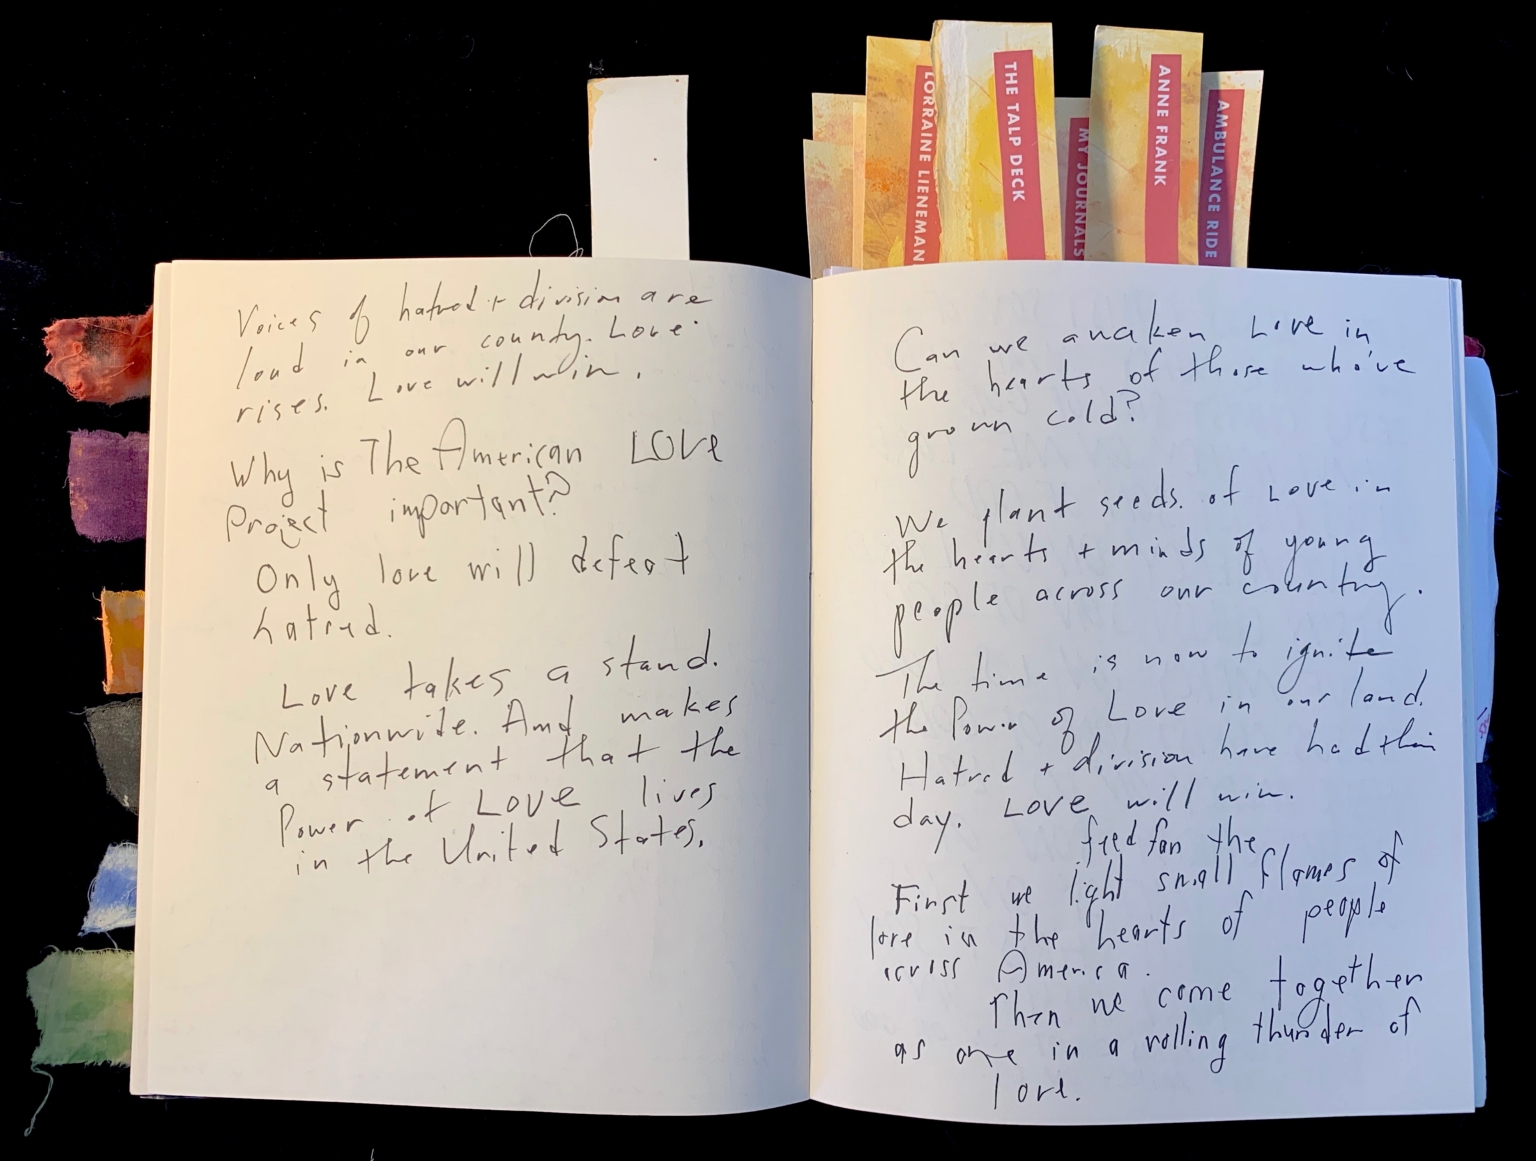 LORRAINE LIENEMAN
THE TALP DECK
MY JOURNALS
ANNE FRANK
AMBULANCE RIDE
Voices of hatred + division are
loud in our county. Love
rises. Love will win.
Why is The American LOVE
Project important?
Only love will defeat
hatred.
Love takes a stand.
Nationwide. And makes
a statement that the
Power of LOVE lives
in the United States.
Can we awaken Love in
the hearts of those who've
grown cold?
We plant seeds of Love in
the hearts + minds of young
people across our country.
The time is now to ignite
the Power of Love in our land.
Hatred + division have had their
day. LOVE will win.
feed fan the
First we light small flames of
love in the hearts of people
across America.
Then we come together
as one in a rolling thunder of
love.